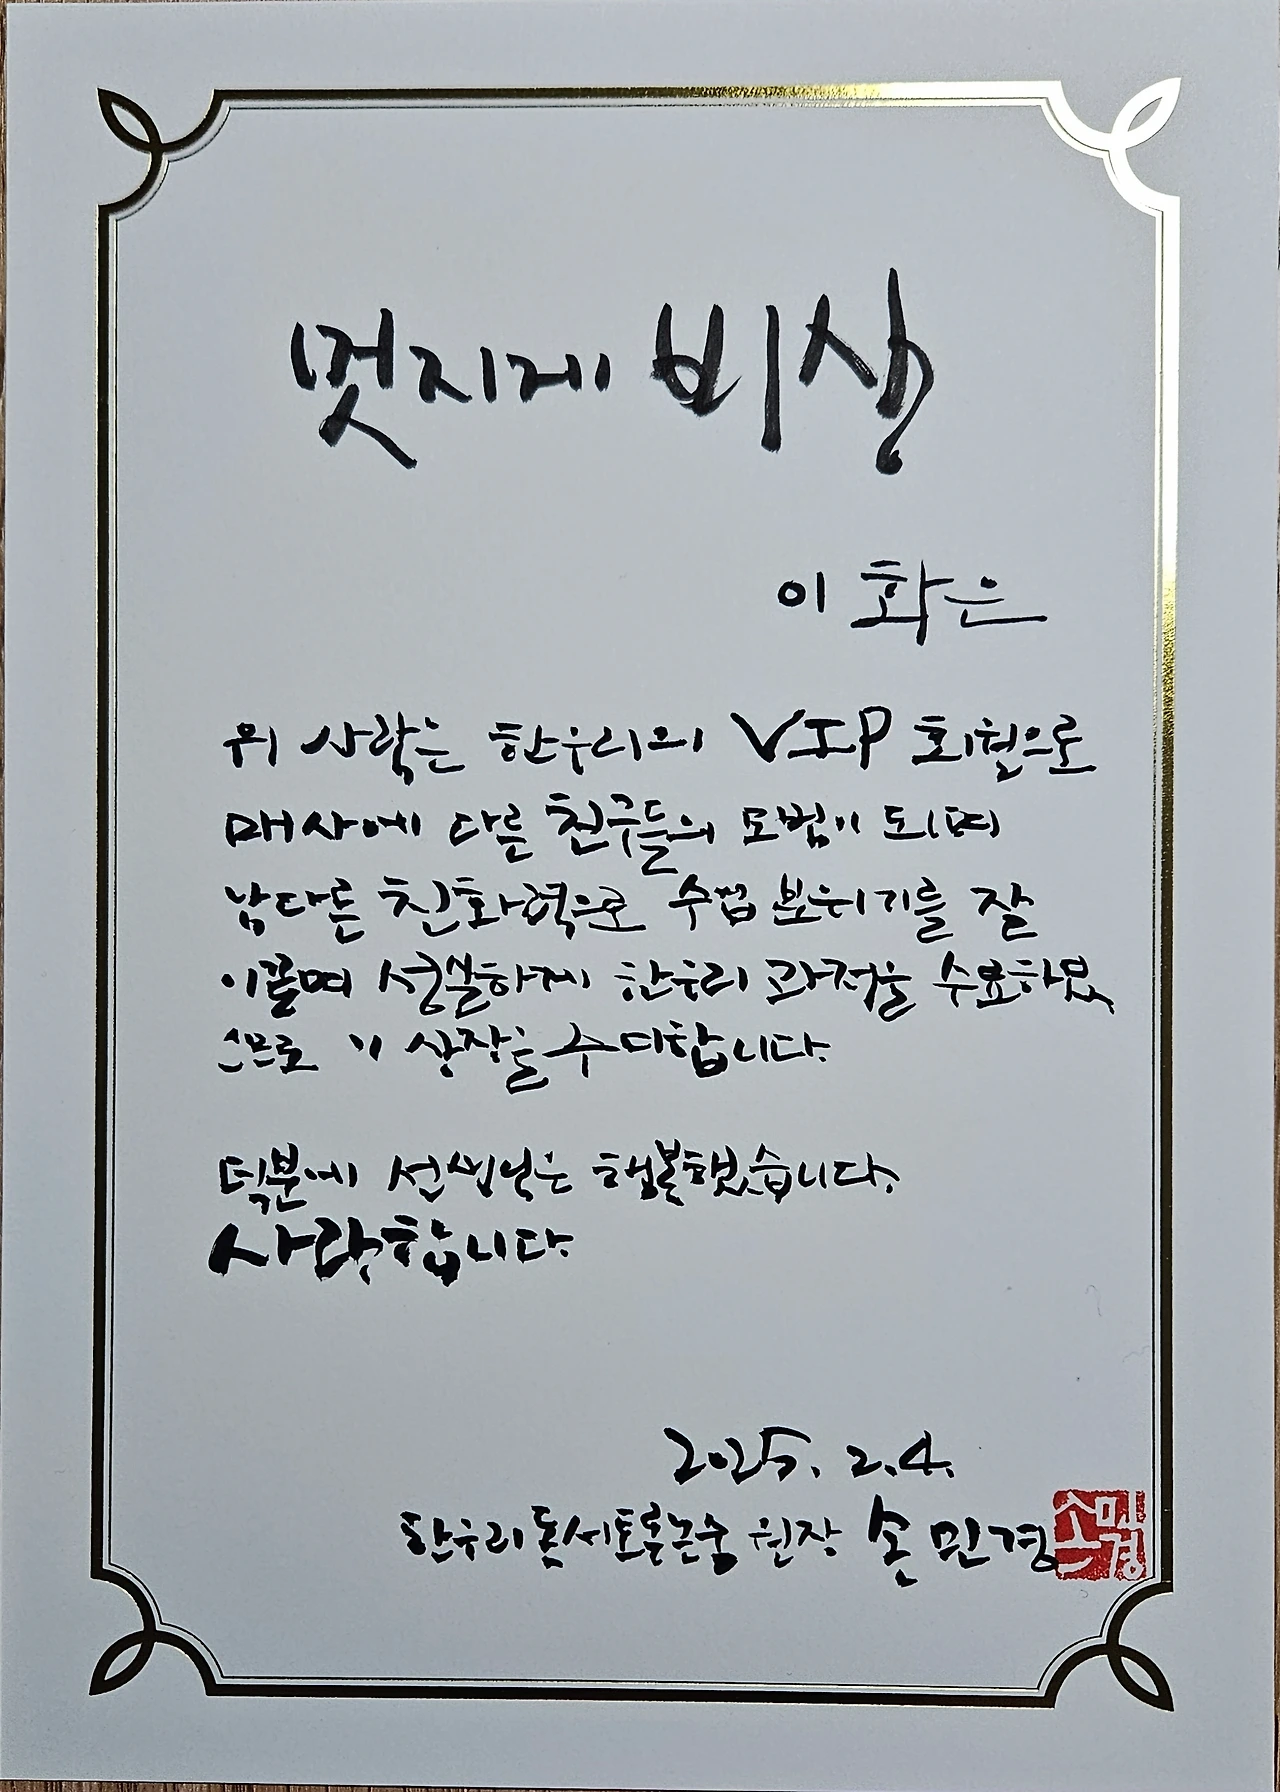 멋지게 비상
이화은
위 사람은 한우리의 VIP 회원으로
매사에 다른 친구들의 모범이 되며
남다른 친화력으로 수업 분위기를 잘
이끌며 성실하게 한우리 과정을 수료하였
으므로 이 상장을 수여합니다.
덕분에 선생님은 행복했습니다.
사랑합니다.
2025. 2. 4.
한우리독서토론논술 원장 손민경
손민경